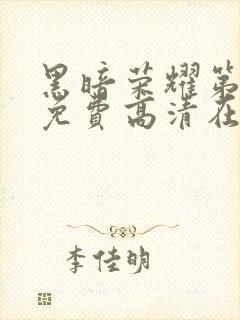 黑暗荣耀第
免费高清在
李佳明